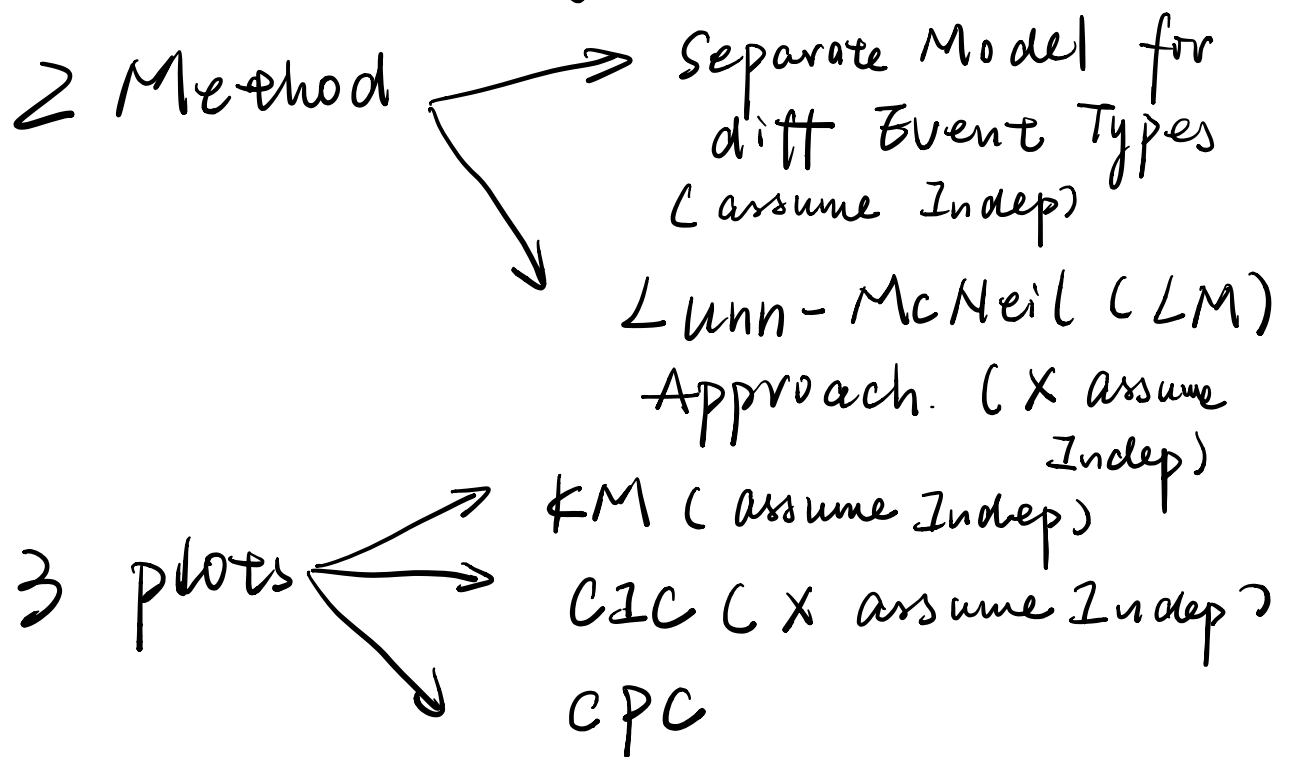 2 Method
Separate Model for
diff Event Types
(assume Indep)
Lunn-McNeil (LM)
Approach. (X assume
Indep)
3 plots
KM (assume Indep)
CIC (X assume Indep)
CPC